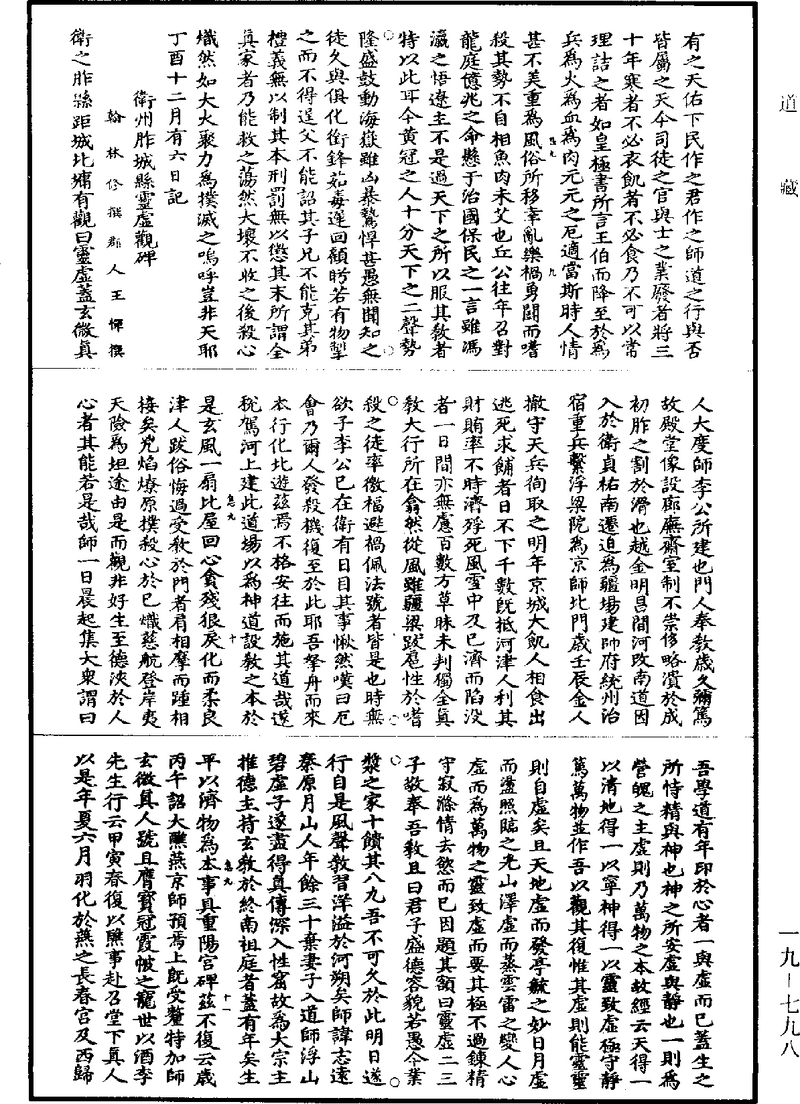 道藏
一九－七九八
有之天佑下民作之君作之師道之行與否
皆屬之天今司徒之官與士之業廢者將三
十年寒者不必衣飢者不必食乃不可以常
理詰之者如皇極書所言王伯而降至於為
兵為火為血為肉元元之厄適當斯時人情
甚不美重為風俗所移幸亂樂禍勇鬪而嗜
殺其勢不自相魚肉未艾也丘公往年召對
龍庭億兆之命懸于治國保民之一言雖馮
瀛之悟遼主不是過天下之所以服其教者
特以此耳今黃冠之人十分天下之二聲勢
隆盛鼓動海嶽雖凶暴鷙悍甚愚無聞知之
徒久與俱化銜鋒茹毒遲回顧盻若有物掣
之而不得逞父不能詔其子兄不能克其弟
禮義無以制其本刑罰無以懲其末所謂全
真家者乃能救之蕩然大壞不收之後殺心
熾然如大火聚力為撲滅之嗚呼豈非天耶
丁酉十二月有六日記
衛州胙城縣靈虛觀碑
翰林修撰郡人王惲撰
衛之胙縣距城北墉有觀曰靈虛蓋玄微真
人大度師李公所建也門人奉教歲久彌篤
故殿堂像設廊廡齋室制不崇侈略潰於成
初胙之割於滑也越金明昌間河改南道因
入於衛貞祐南遷迫為疆場建帥府統州治
宿重兵繫浮梁院為京師北門歲壬辰金人
撤守天兵徇取之明年京城大飢人相食出
逃死求餔者日不下千數既抵河津人利其
財賄率不時濟殍死風雪中及已濟而陷沒
者一日間亦無慮百數方草昧未判獨全真
教大行所在翕然從風雖疆梁跋扈性於嗜
殺之徒率徼福避禍佩法號者皆是也時無
欲子李公已在衛有日目其事愀然嘆曰厄
會乃爾人發殺機復至於此耶吾拏舟而來
本行化北遊茲焉不格安往而施其道哉遂
稅駕河上建此道場以為神道設教之本於
是玄風一扇比屋回心貪殘狠戾化而柔良
津人跋俗悔過受教於門者肩相摩而踵相
接矣兇焰燎原撲殺心於已熾慈航登岸夷
天險為坦途由是而觀非好生至德浹於人
心者其能若是哉師一日晨起集大衆謂曰
吾學道有年印於心者一與虛而已蓋生之
所恃精與神也神之所安虛與靜也一則為
營魄之主虛則乃萬物之本故經云天得一
以清地得一以寧神得一以靈致虛極守靜
篤萬物並作吾以觀其復惟其虛則能靈靈
則自虛矣且天地虛而發亭毓之妙日月虛
而盪照臨之光山澤虛而蒸雲雷之變人心
虛而為萬物之靈致虛而要其極不過鍊精
守寂滌情去慾而已因題其額曰靈虛二三
子敬奉吾教且曰君子盛德容貌若愚今業
漿之家十饋其八九吾不可久於此明日遂
行自是風聲教習洋溢於河朔矣師諱志遠
秦原月山人年餘三十棄妻子入道師浮山
碧虛子遂盡得真傳深入性窟故為大宗主
推德主持玄教於終南祖庭者蓋有年矣生
平以濟物為本事具重陽宮碑茲不復云歲
丙午詔大醮燕京師預焉上既受釐特加師
玄微真人號且膺寶冠霞帔之寵世以酒李
先生行云甲寅春復以醮事赴召堂下真人
以是年夏六月羽化於燕之長春宮及西歸